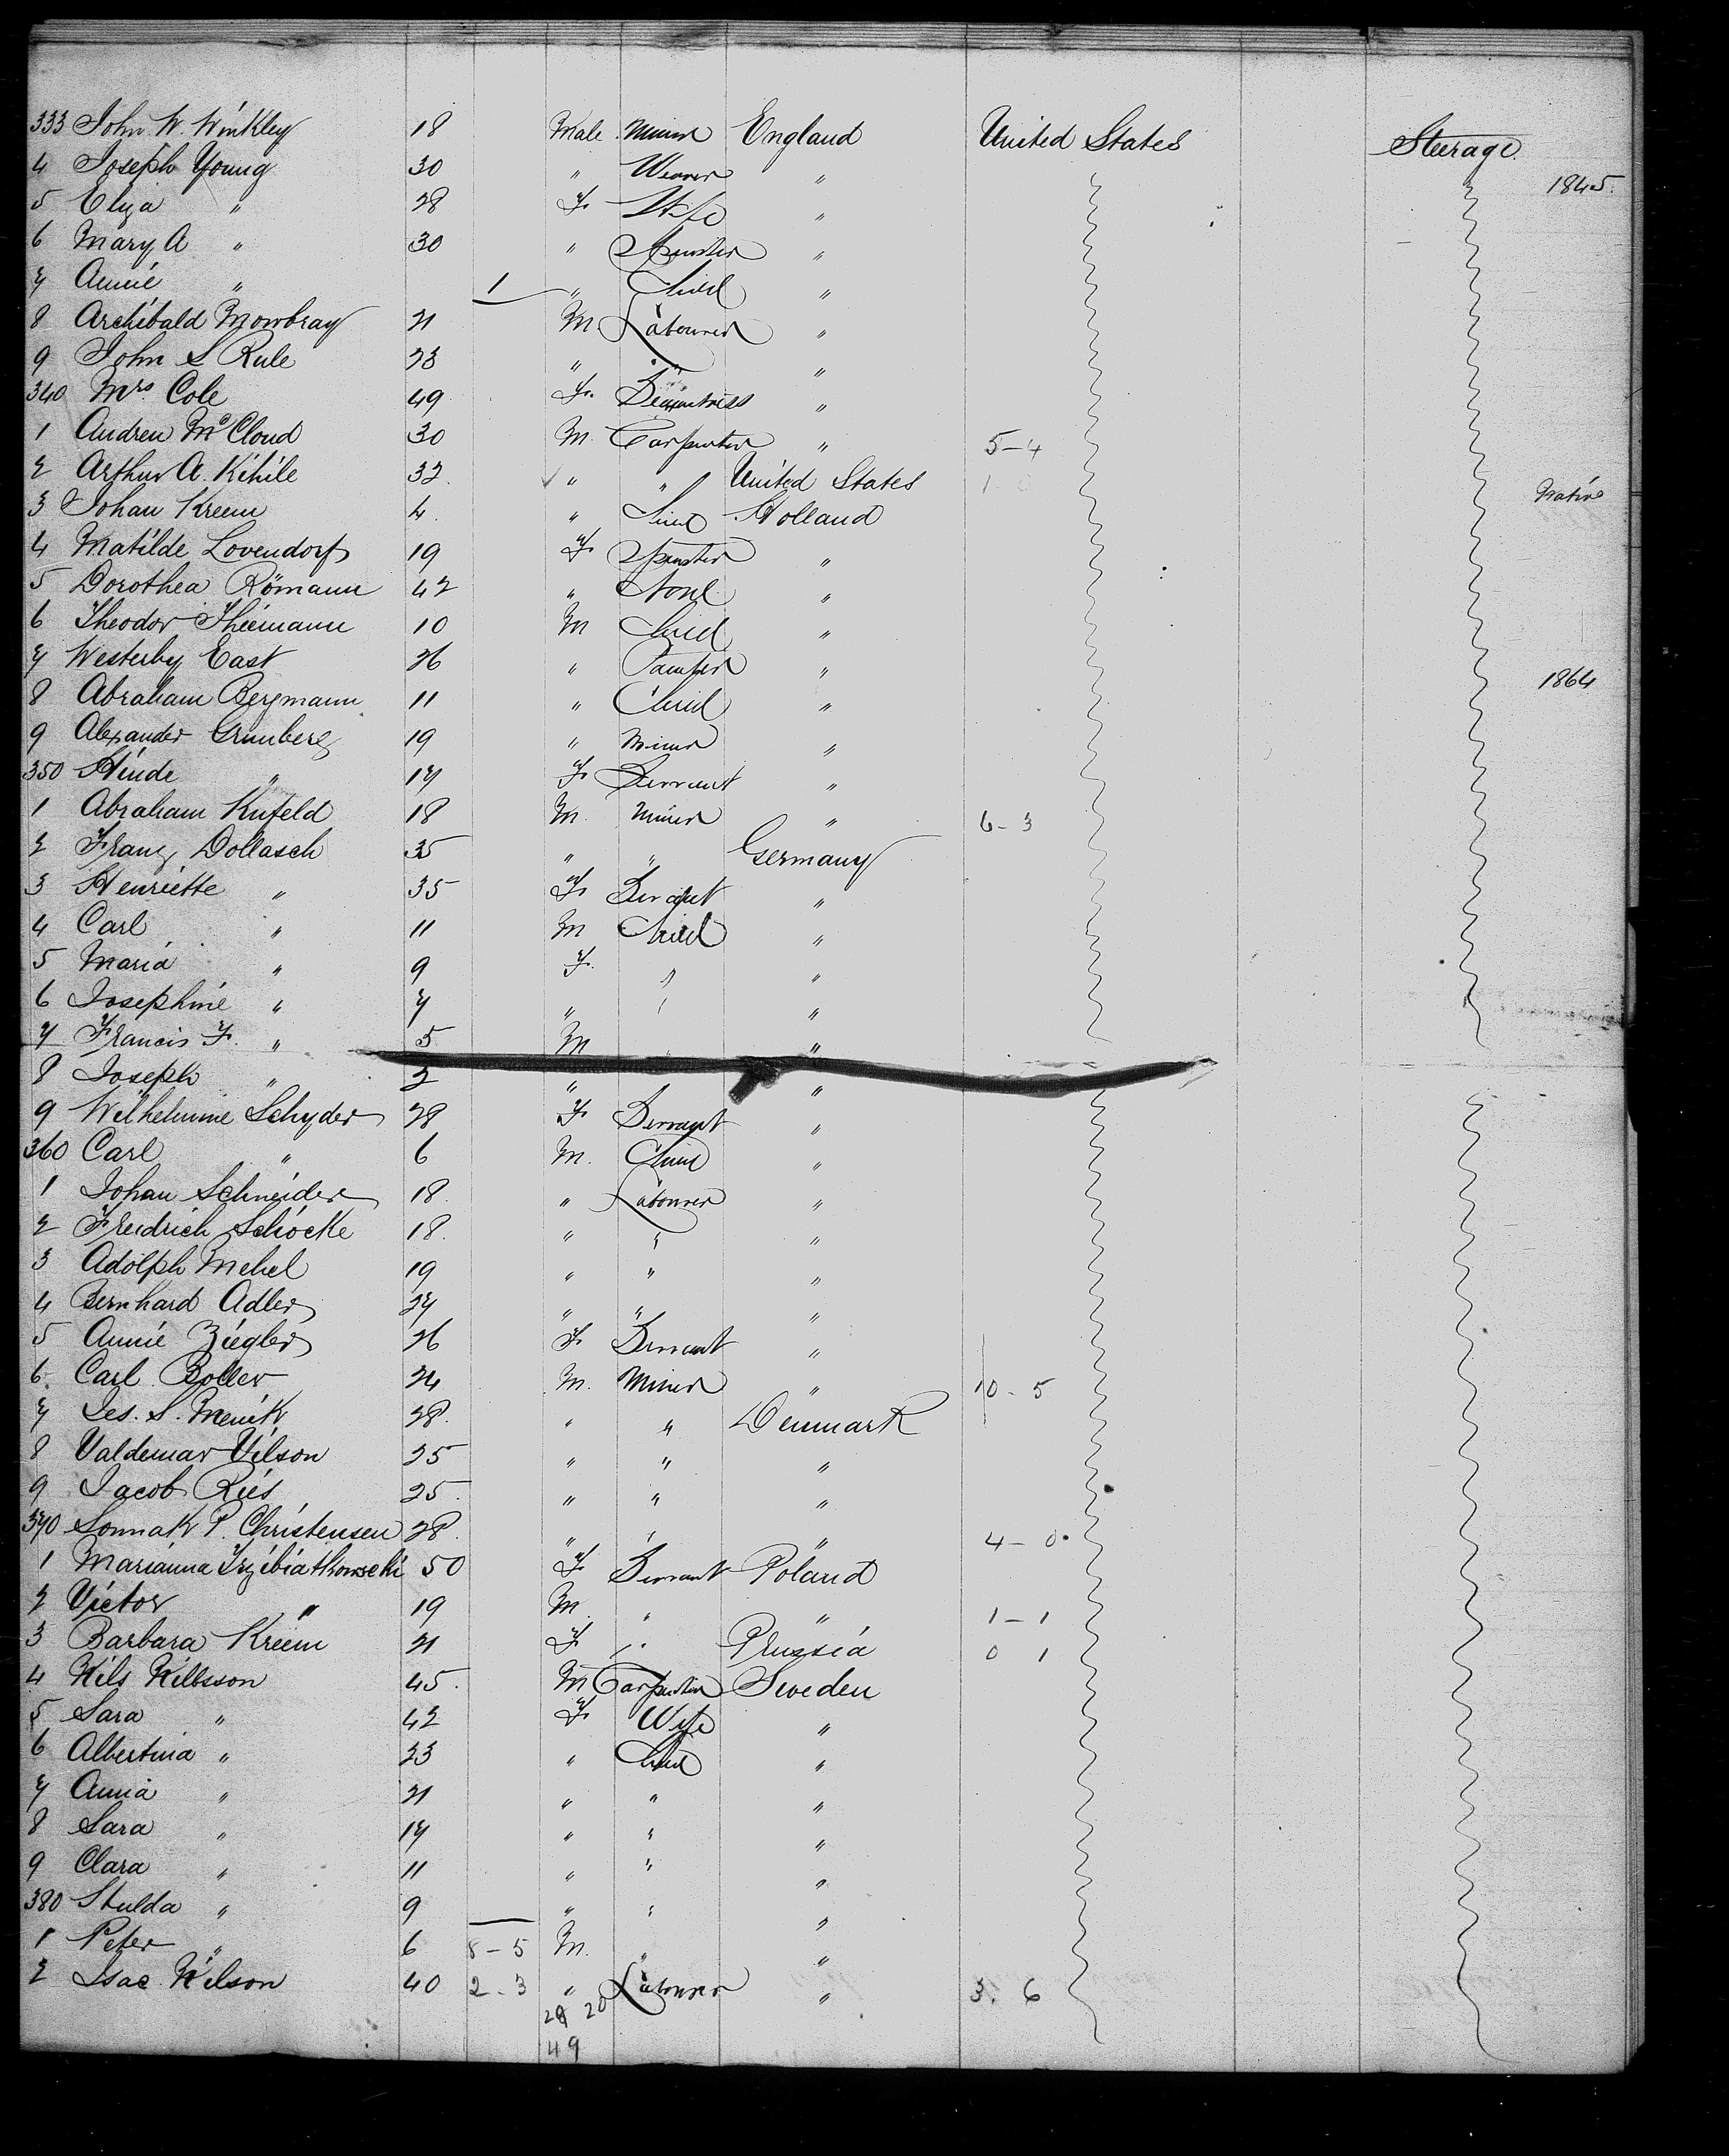 333 John W. Winkley 18 Male Miner England United States Steerage
4 Joseph Young 30 " Weaver " 1845.
5 Eliza " 28 F. Wife "
6 Mary A " 30 " Spinster "
7 Annie " 1 " Child "
8 Archibald Mowbray 21 M Labourer "
9 John S Rule 23 " " "
340 Mrs Cole 49 F. "
1 Andrew McCloud 30 M. Carpenter " 5-4
2 Arthur A. Kihile 32 " " United States 1-0 Native
3 Johan Kreem 4 " Child Holland
4 Matilde Lovendorf 19 F. Spinster "
5 Dorothea Römann 42 " None "
6 Theodor Thiemann 10 M Child "
7 Westerby East 26 " " 1864
8 Abraham Bergmann 11 " Child "
9 Alexander Grunberg 19 " Miner "
350 Hinde " 17 F. Servant "
1 Abraham Kufeld 18 M. Miner " 6-3
2 Franz Dollasch 35 " " Germany
3 Henriette " 35 F. Servant "
4 Carl " 11 M Child "
5 Maria " 9 F. " "
6 Josephine " 7 " " "
7 Francis F. " 5 M " "
8 Joseph " 2 " "
9 Wilhelmine Schyder 28 F. Servant "
360 Carl " 6 M. Child "
1 Johan Schneider 18 " Labourer "
2 Freidrich Schocke 18. " " "
3 Adolph Mehel 19 " " "
4 Bernhard Adler 27 " " "
5 Annie Ziegler 26 F. Servant "
6. Carl Boller 24 M. Miner " 10-5
7 Jes. S. Menik 28. " " Denmark
8 Valdemar Vilson 25 " " "
9 Jacob Ries 25. " " "
370 Sonnak P. Christensen 28. " " " 4-0
1 Marianna 50 F. Servant Poland
2 Victor " 19 M. " " 1-1
3 Barbara Kreem 21 F. " Prussia 0 1
4 Nils Nillsson 45. M Carpenter Sweden
5 Sara " 42 F. Wife "
6 Albertina " 23 " Child "
7 Anna " 21 " " "
8 Sara " 17 " " "
9 Clara " 11 " " "
380 Hulda " 9 " " "
1 Peter " 6 8-5 M. " "
2 Isac Nilson 40 2-3 " Labourer " 3. 6
20
49